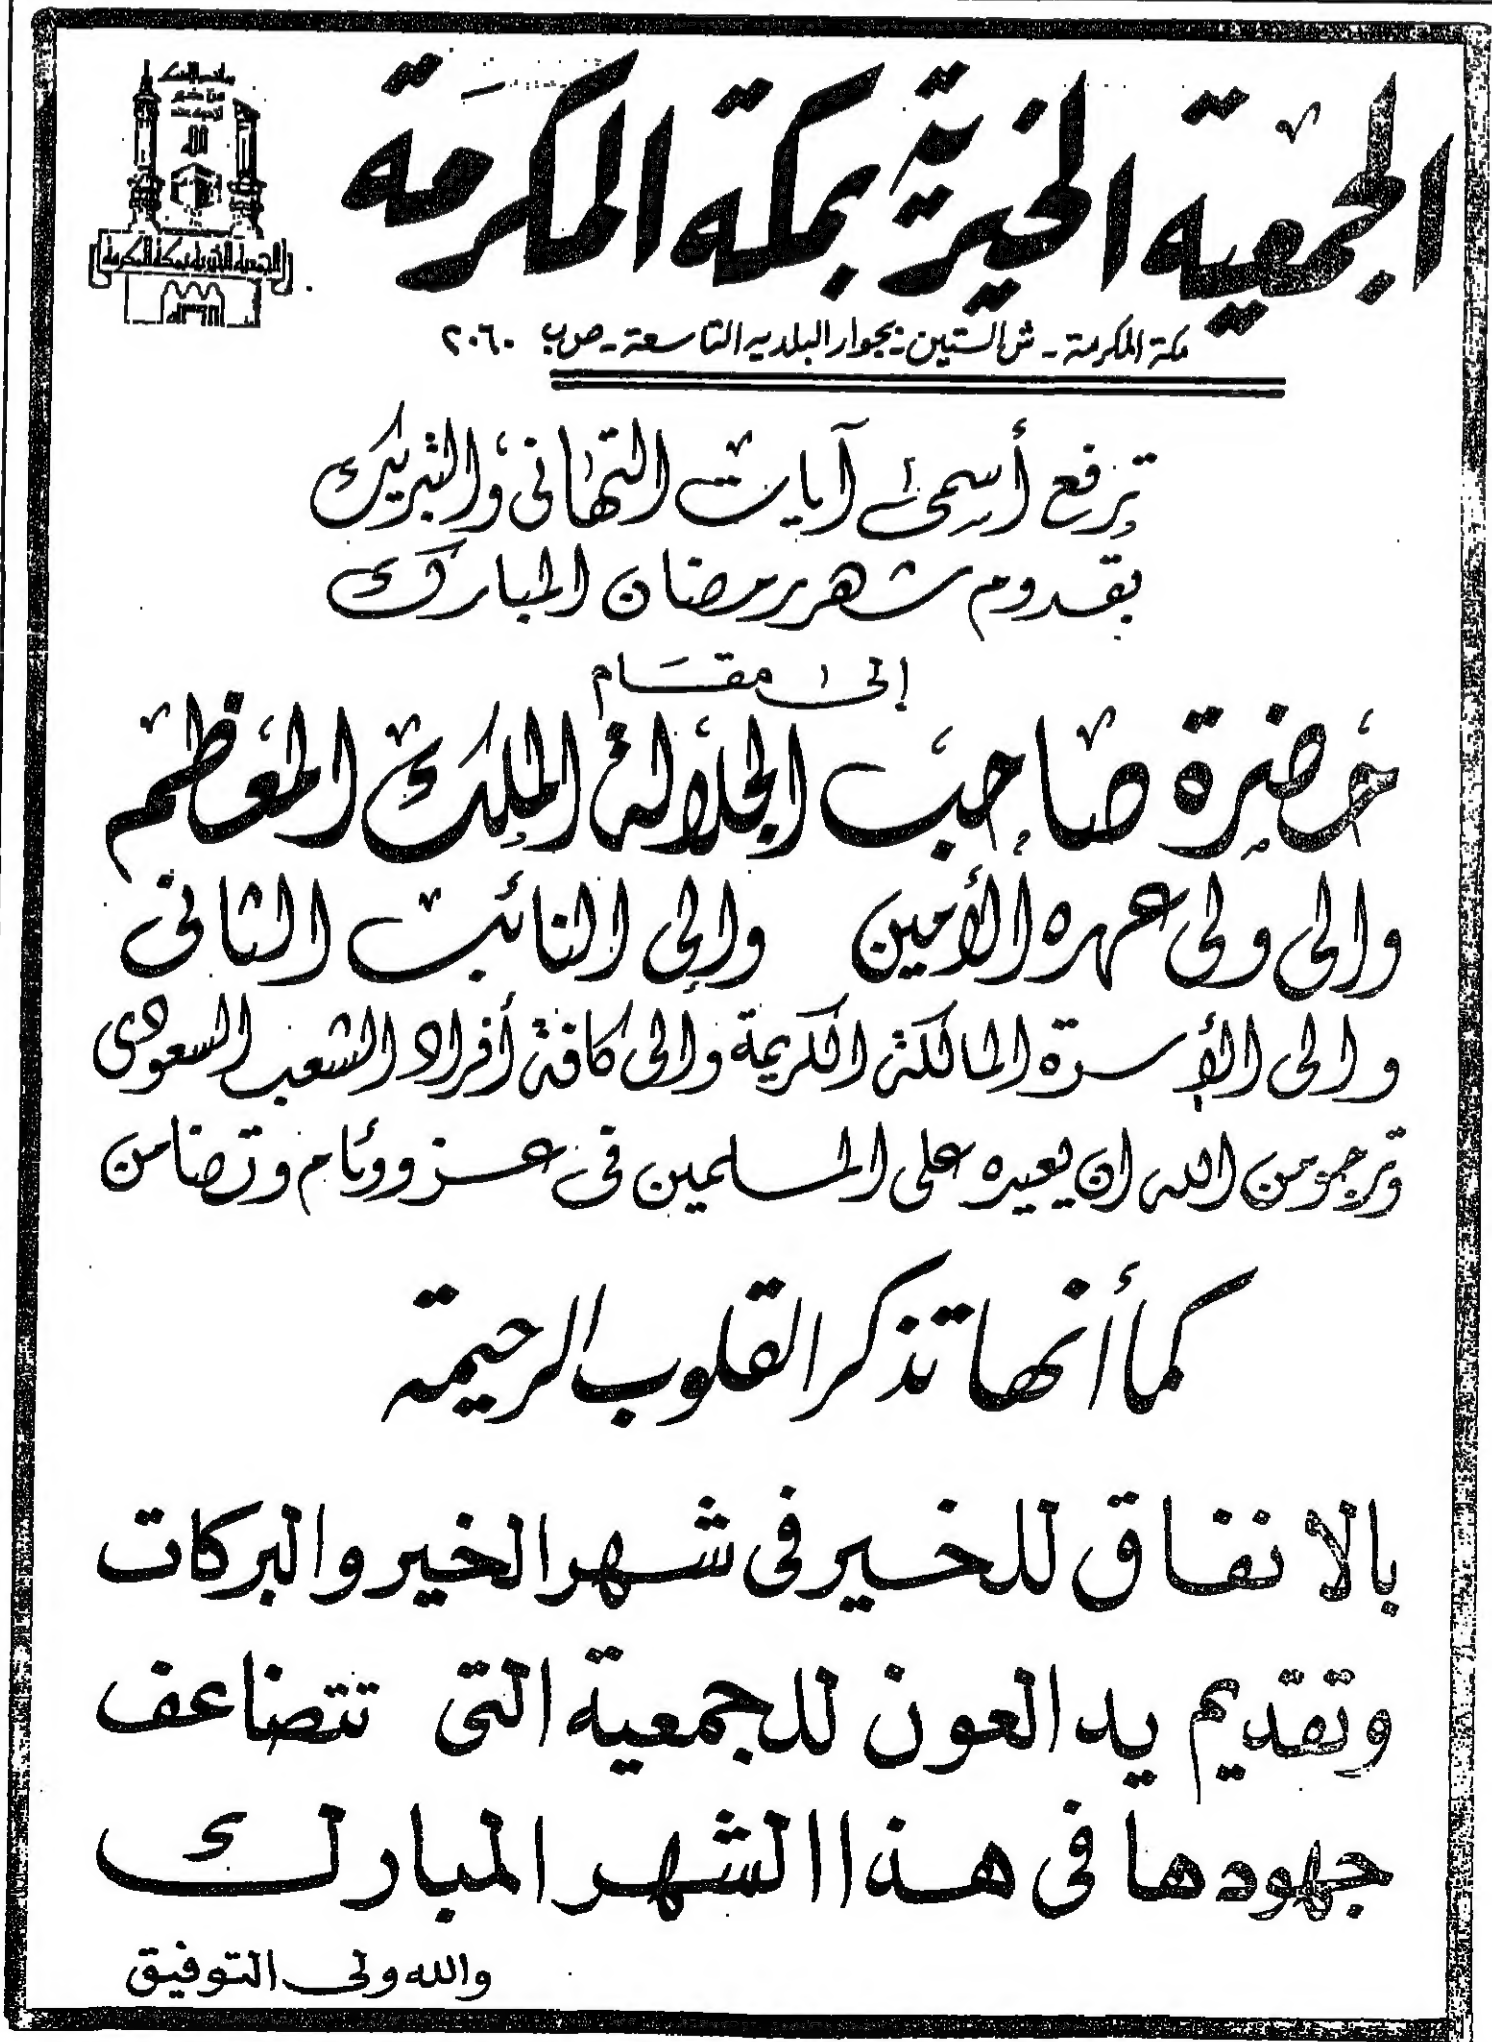 الجمعية الخيرية بمكة المكرمة
الجمعية الخيرية بمكة المكرمة
مكة المكرمة - ش الستين - بجوار البلديه التاسعة - ص ب ٢٠٦٠
ترفع أسمى آيات التهانى والتبريك
بقدوم شهر رمضان المبارك
إلى مقام
حضرة صاحب الجلالة الملك المعظم
والى ولى عهده الأمين والى النائب الثانى
والى الأسرة المالكة الكريمة والى كافة أفراد الشعب السعودى
وترجو من الله ان يعيده على المسلمين فى عز ووئام وتضامن
كما أنها تذكر القلوب الرحيمه
بالانفاق للخير فى شهر الخير والبركات
وتقديم يد العون للجمعية التى تتضاعف
جهودها فى هذا الشهر المبارك
والله ولى التوفيق